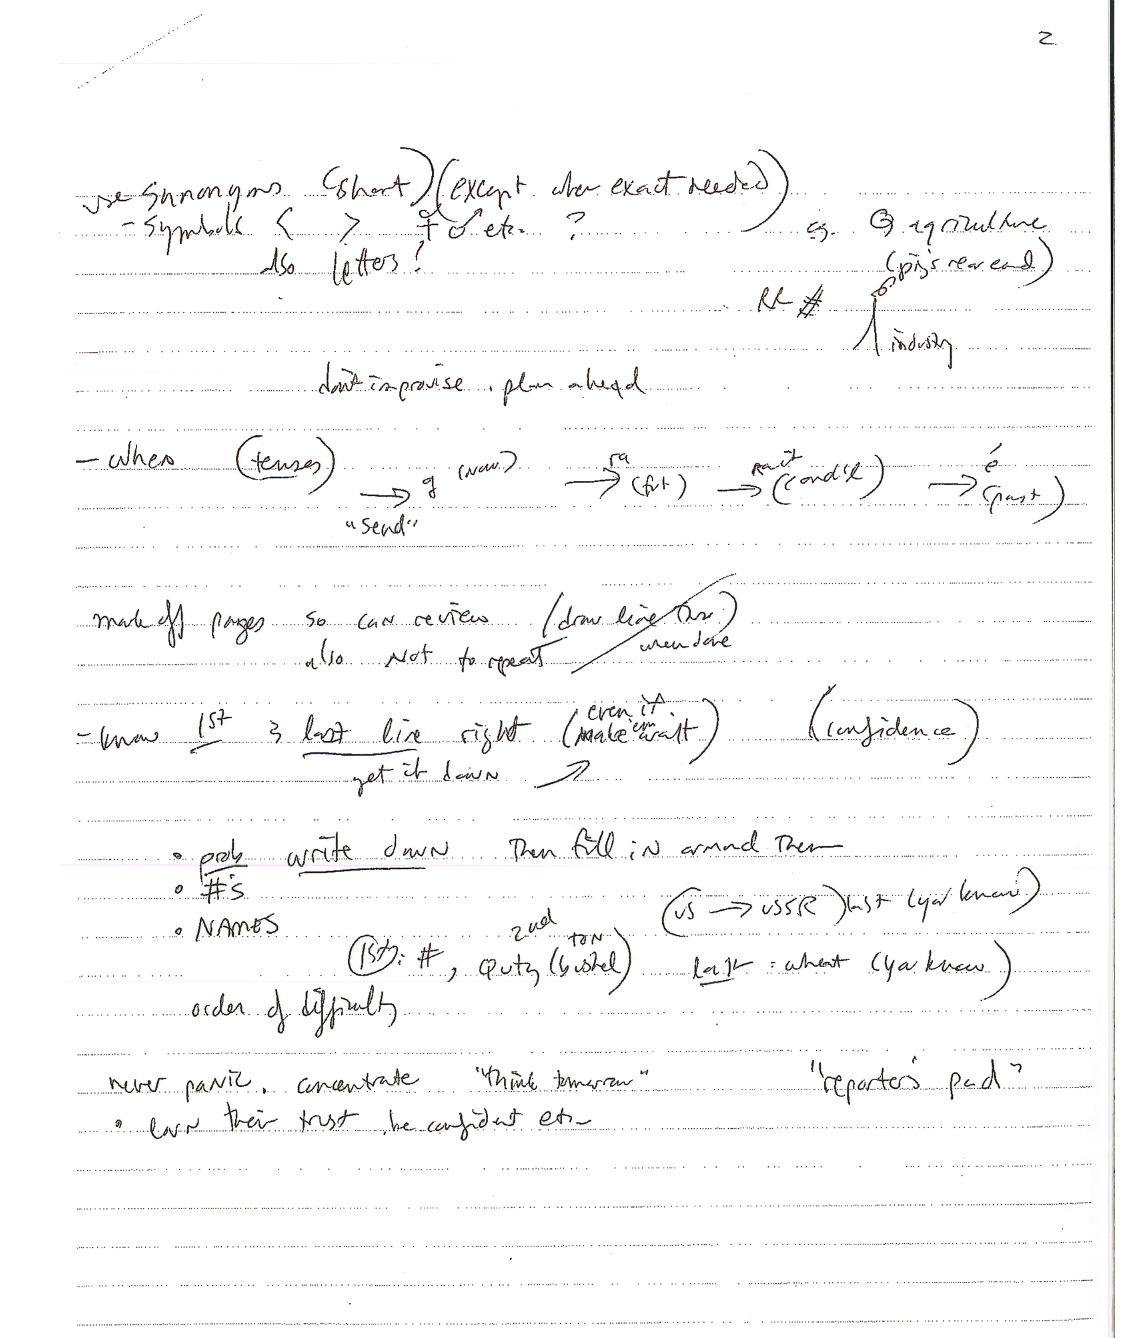 2
use synonyms (short) (except when exact needed)
- symbols < > ♀ ♂ etc. ?
also letters?
eg. agriculture
(pig's rear end)
RR #
industry
don't improvise. plan ahead
- when (tenses)
→ g (now) → ra (fut) → rait (cond'l) → é (past)
"send"
mark off pages so can review (draw line thru)
also Not to repeat when done
- know 1st & last line right (even if make 'em wait) (confidence)
get it down ↗
• prob write down Then fill in around Them
• #'s
• NAMES
(US → USSR) last (you know)
1st: #, 2nd Qnty (bushel) TON last : wheat (you know)
order of difficulty
never panic. concentrate "think tomorrow" "reporter's pad"
• earn their trust. be confident etc.